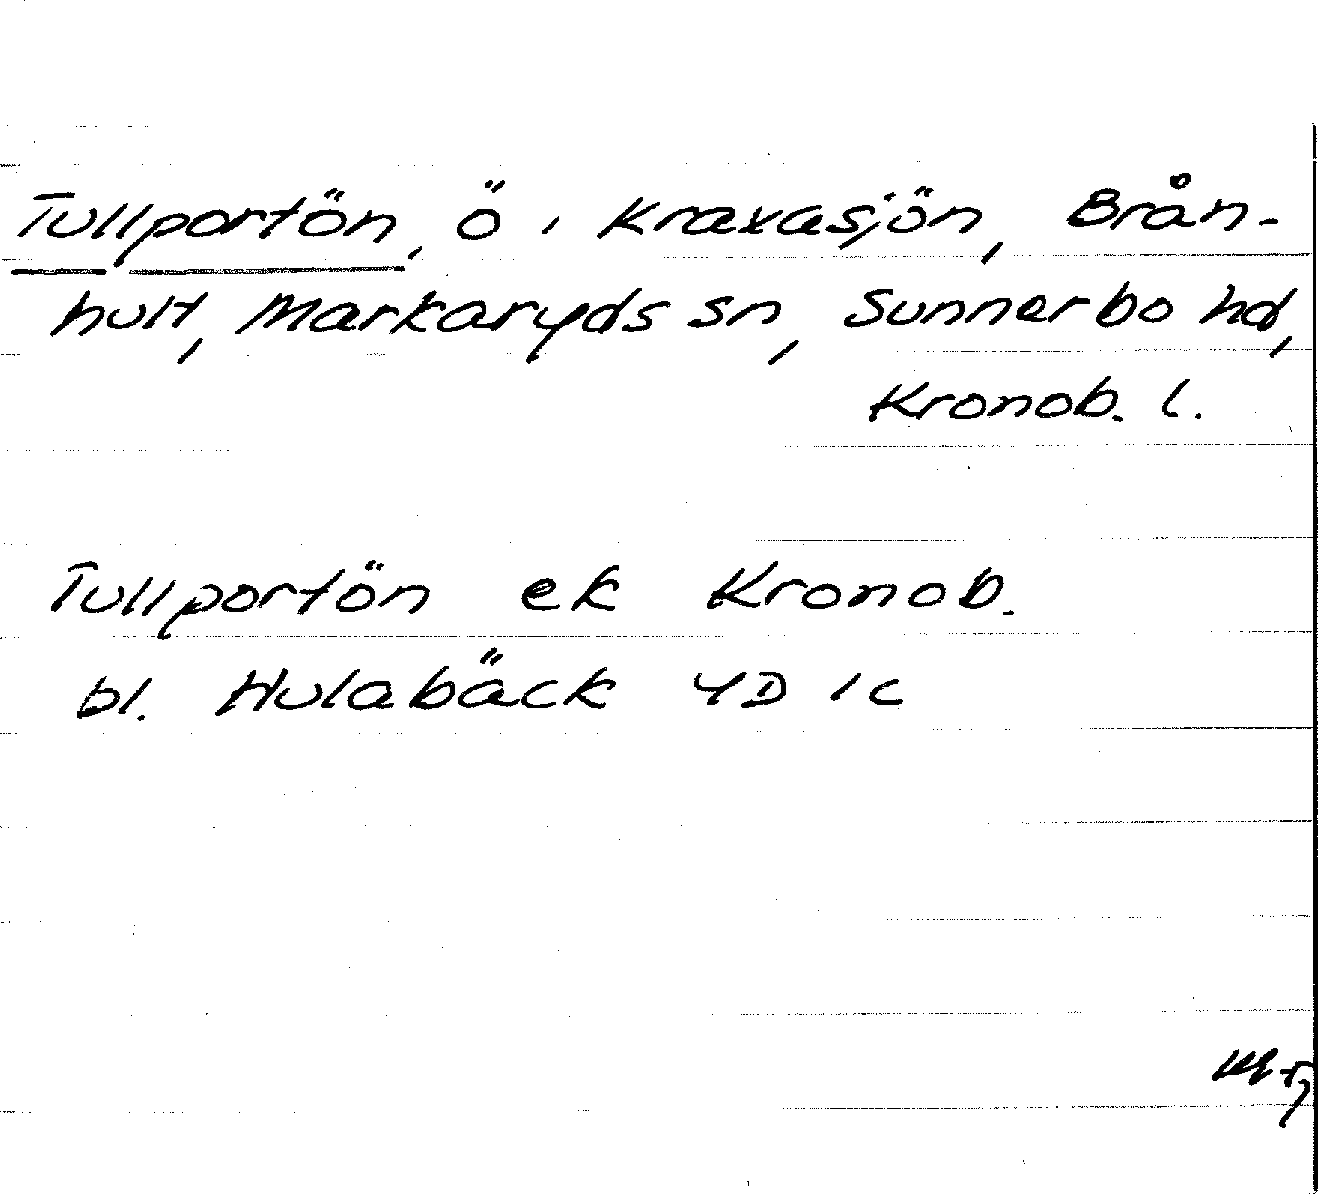 Tullportön, ö i Kraxasjön, Brån-
hult, Markaryds sn, Sunnerbo hd,
Kronob. l.
Tullportön ek Kronob.
bl. Hulabäck 4D 1c